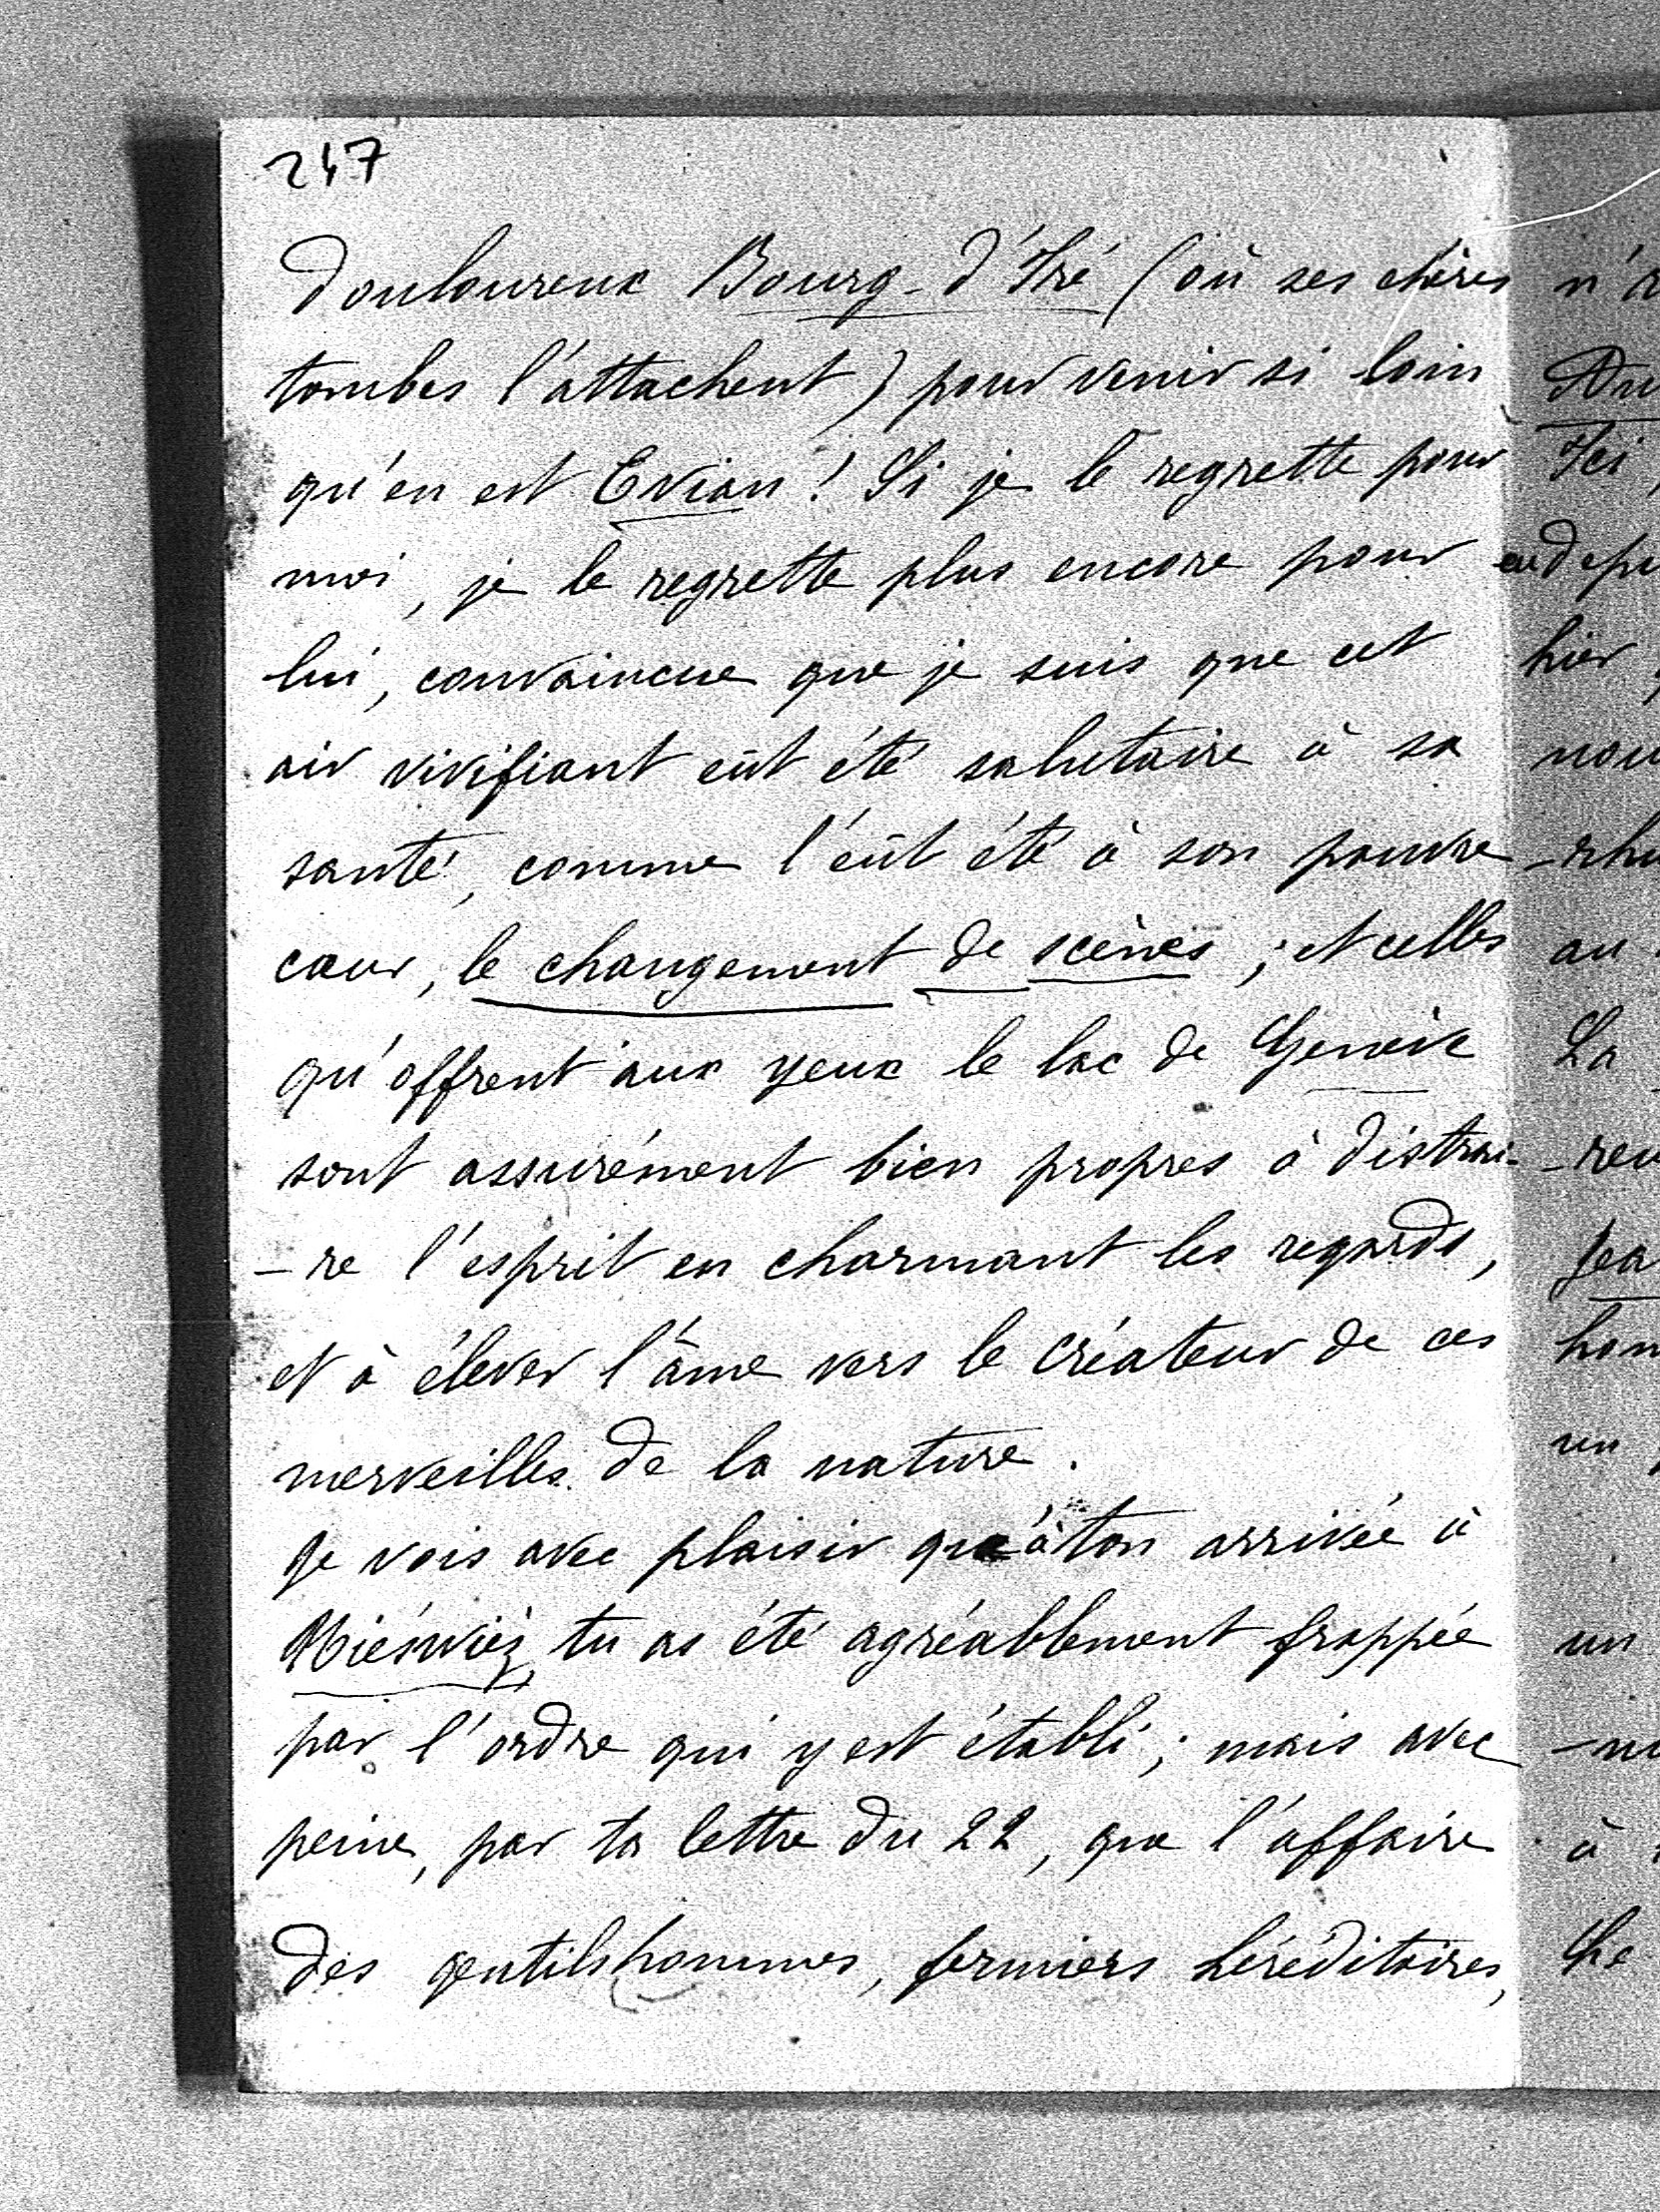 247
douloureux Bourg-d'Iré (où ses chères
tombes l'attachent) pour venir si loin
qu'en est Evian ! Si je le regrette pour
moi, je le regrette plus encore pour
lui, convaincue que je suis que cet
air vivifiant eût été salutaire à sa
santé, comme l'eût été à son pauvre
cœur, le changement de scènes ; et celles
qu'offrent aux yeux le lac de Genève
sont assurément bien propres à distrai-
-re l'esprit en charmant les regards,
et à élever l'âme vers le Créateur de ces
merveilles de la nature.
Je vois avec plaisir qu'à ton arrivée à
Niéswiéz, tu as été agréablement frappée
par l'ordre qui y est établi ; mais avec
peine, par ta lettre du 22, que l'affaire
des gentilshommes, fermiers héréditaires,